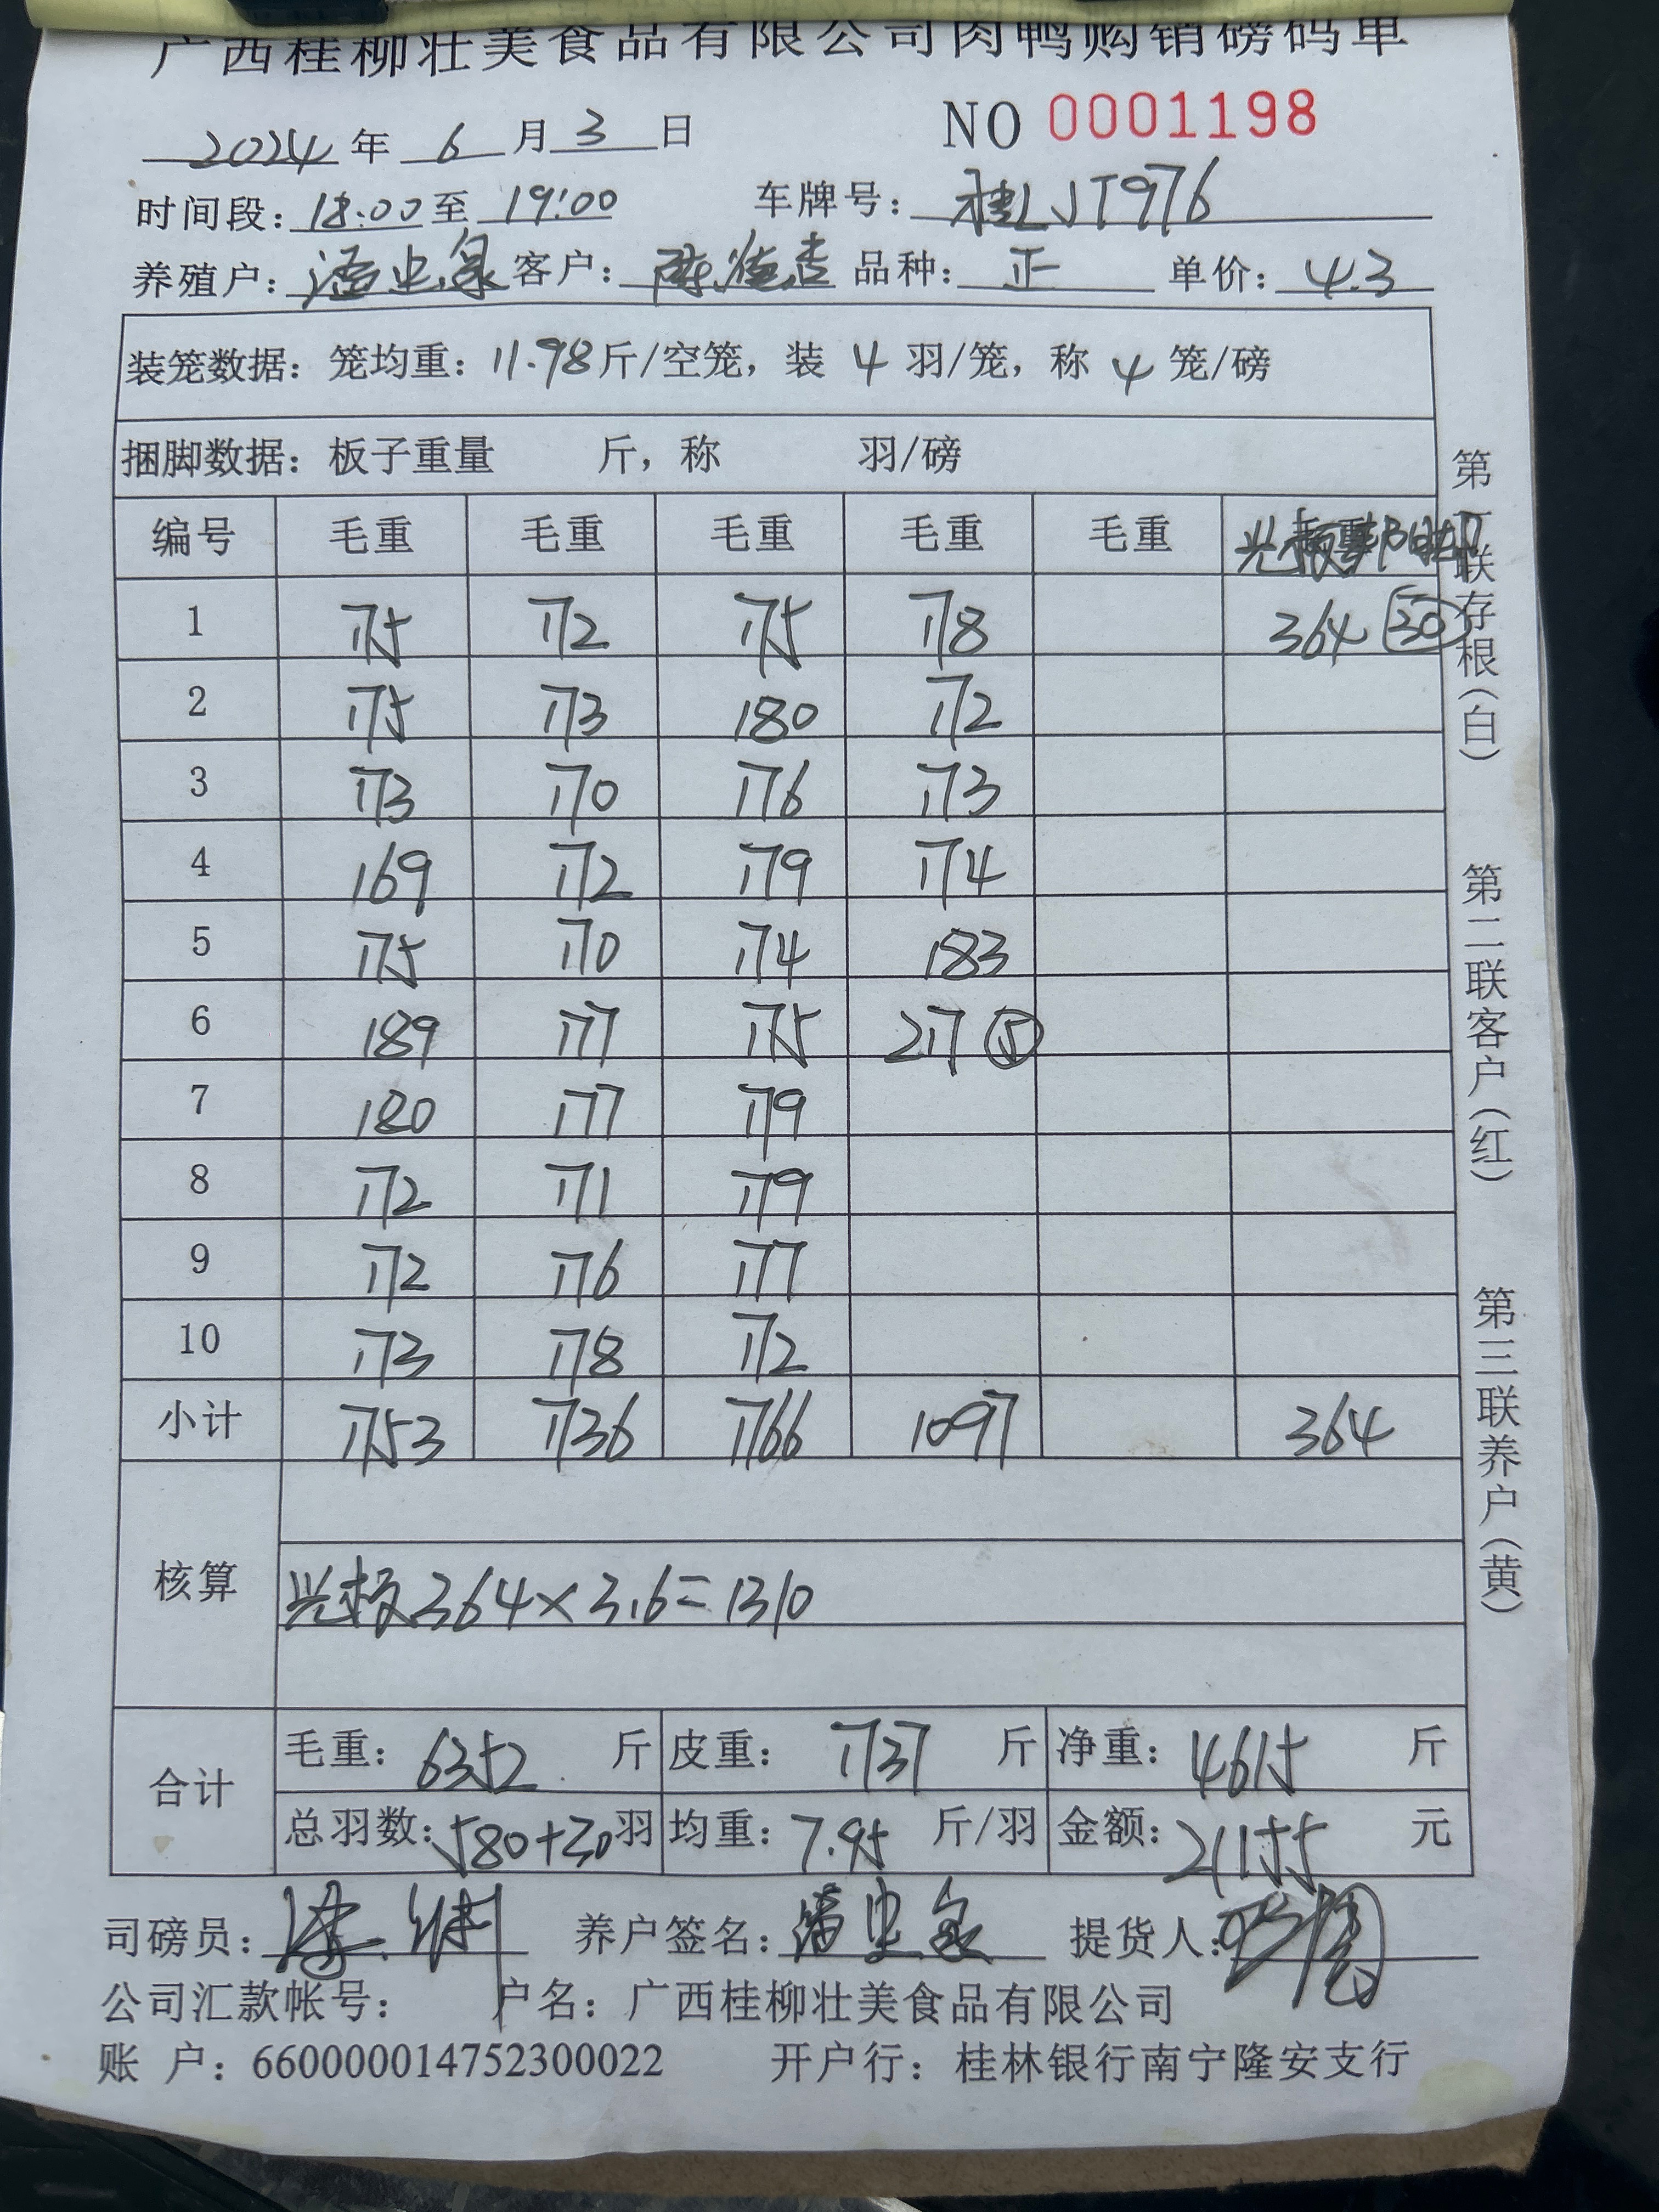 广西桂柳壮美食品有限公司肉鸭购销磅码单
2024 年 6 月 3 日 NO 0001198
时间段: 18:00 至 19:00 车牌号: 桂LJT976
养殖户: 客户: 品种: 正 单价: 4.3
装笼数据: 笼均重: 11.98 斤/空笼, 装 4 羽/笼, 称 4 笼/磅
捆脚数据: 板子重量 斤, 称 羽/磅
编号 毛重 毛重 毛重 毛重 毛重
1 175 172 175 178 364 30
2 175 173 180 172
3 173 170 176 173
4 169 172 179 174
5 175 170 174 183
6 189 177 175 217 5
7 180 177 179
8 172 171 179
9 172 176 177
10 173 178 172
小计 1753 1736 1766 1097 364
核算
364×3.6=1310
合计 毛重: 6352 斤 皮重: 1737 斤 净重: 4615 斤
总羽数: 580+30 羽 均重: 7.95 斤/羽 金额: 21155 元
司磅员: 养户签名: 提货人:
公司汇款帐号: 户名: 广西桂柳壮美食品有限公司
账 户: 660000014752300022 开户行: 桂林银行南宁隆安支行
第一联存根(白)
第二联客户(红)
第三联养户(黄)